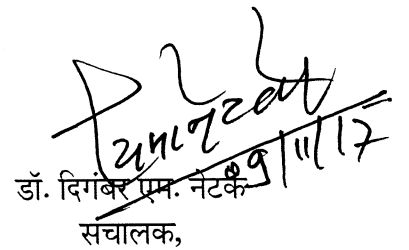 09/11/17
डॉ. दिगंबर एम. नेटके
संचालक,